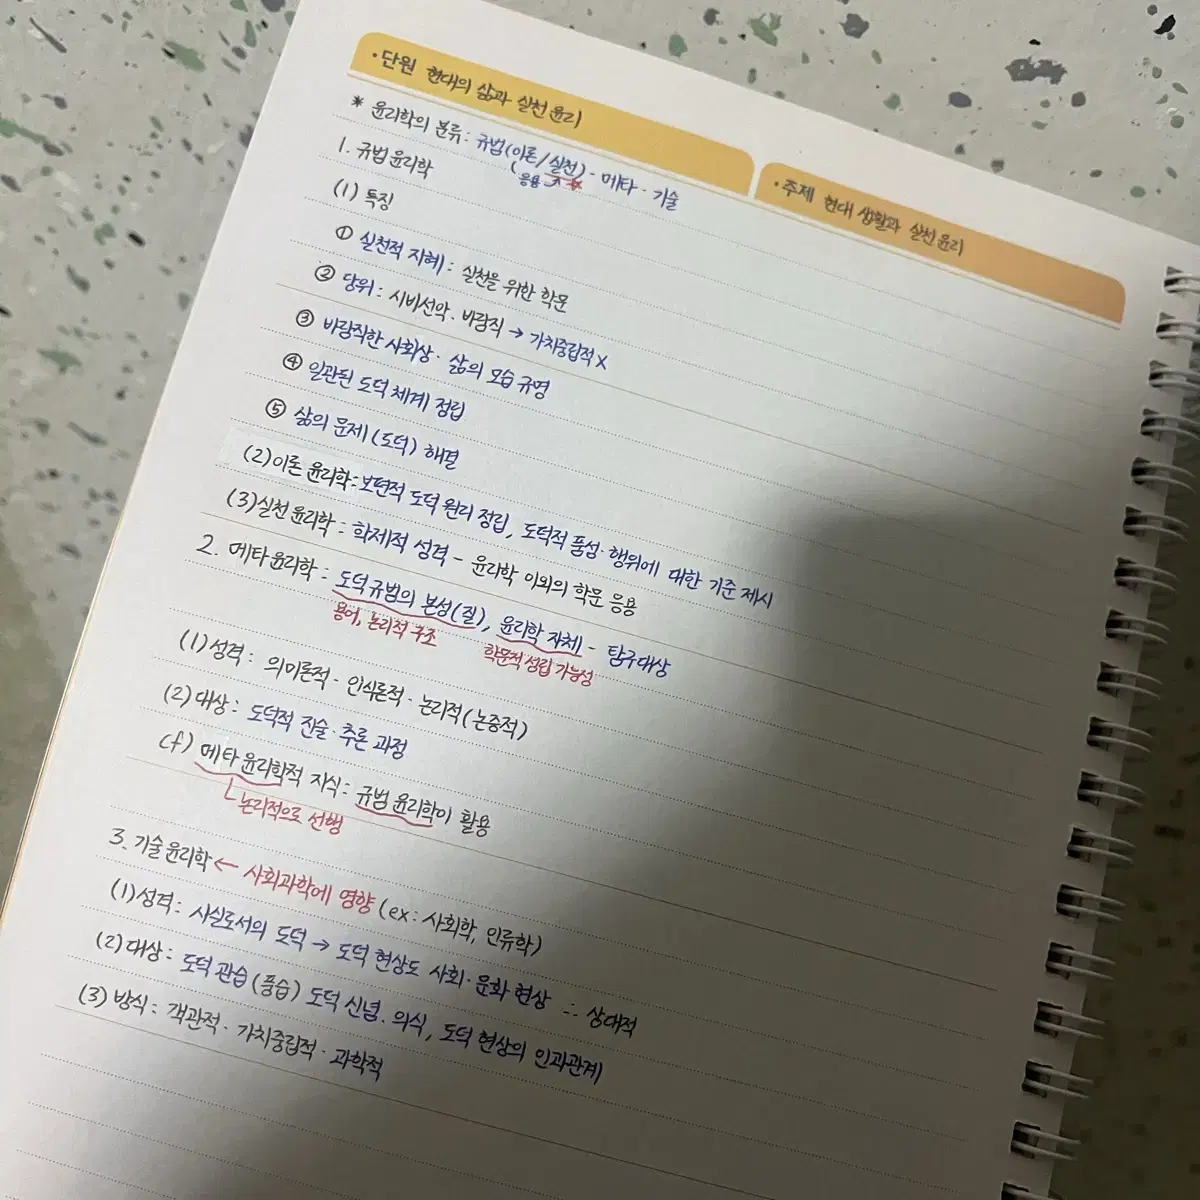 ·단원 현대의 삶과 실천 윤리
·주제 현대 생활과 실천 윤리
* 윤리학의 분류: 규범(이론/실천)·메타·기술
(응용↗★
1. 규범 윤리학
(1) 특징
① 실천적 지혜: 실천을 위한 학문
② 당위: 시비선악·바람직 → 가치중립적 X
③ 바람직한 사회상·삶의 모습 규명
④ 일관된 도덕 체계 정립
⑤ 삶의 문제(도덕) 해결
(2) 이론 윤리학: 보편적 도덕 원리 정립, 도덕적 품성·행위에 대한 기준 제시
(3) 실천 윤리학: 학제적 성격 - 윤리학 이외의 학문 응용
2. 메타 윤리학: 도덕규범의 본성(질), 윤리학 자체 - 탐구대상
용어, 논리적 구조 학문적 성립 가능성
(1) 성격: 의미론적·인식론적·논리적(논증적)
(2) 대상: 도덕적 진술·추론 과정
cf) 메타 윤리학적 지식: 규범 윤리학이 활용
└논리적으로 선행
3. 기술 윤리학 ← 사회과학에 영향 (ex: 사회학, 인류학)
(1) 성격: 사실로서의 도덕 → 도덕 현상도 사회·문화 현상 ∴ 상대적
(2) 대상: 도덕 관습(풍습) 도덕 신념·의식, 도덕 현상의 인과관계
(3) 방식: 객관적·가치중립적·과학적